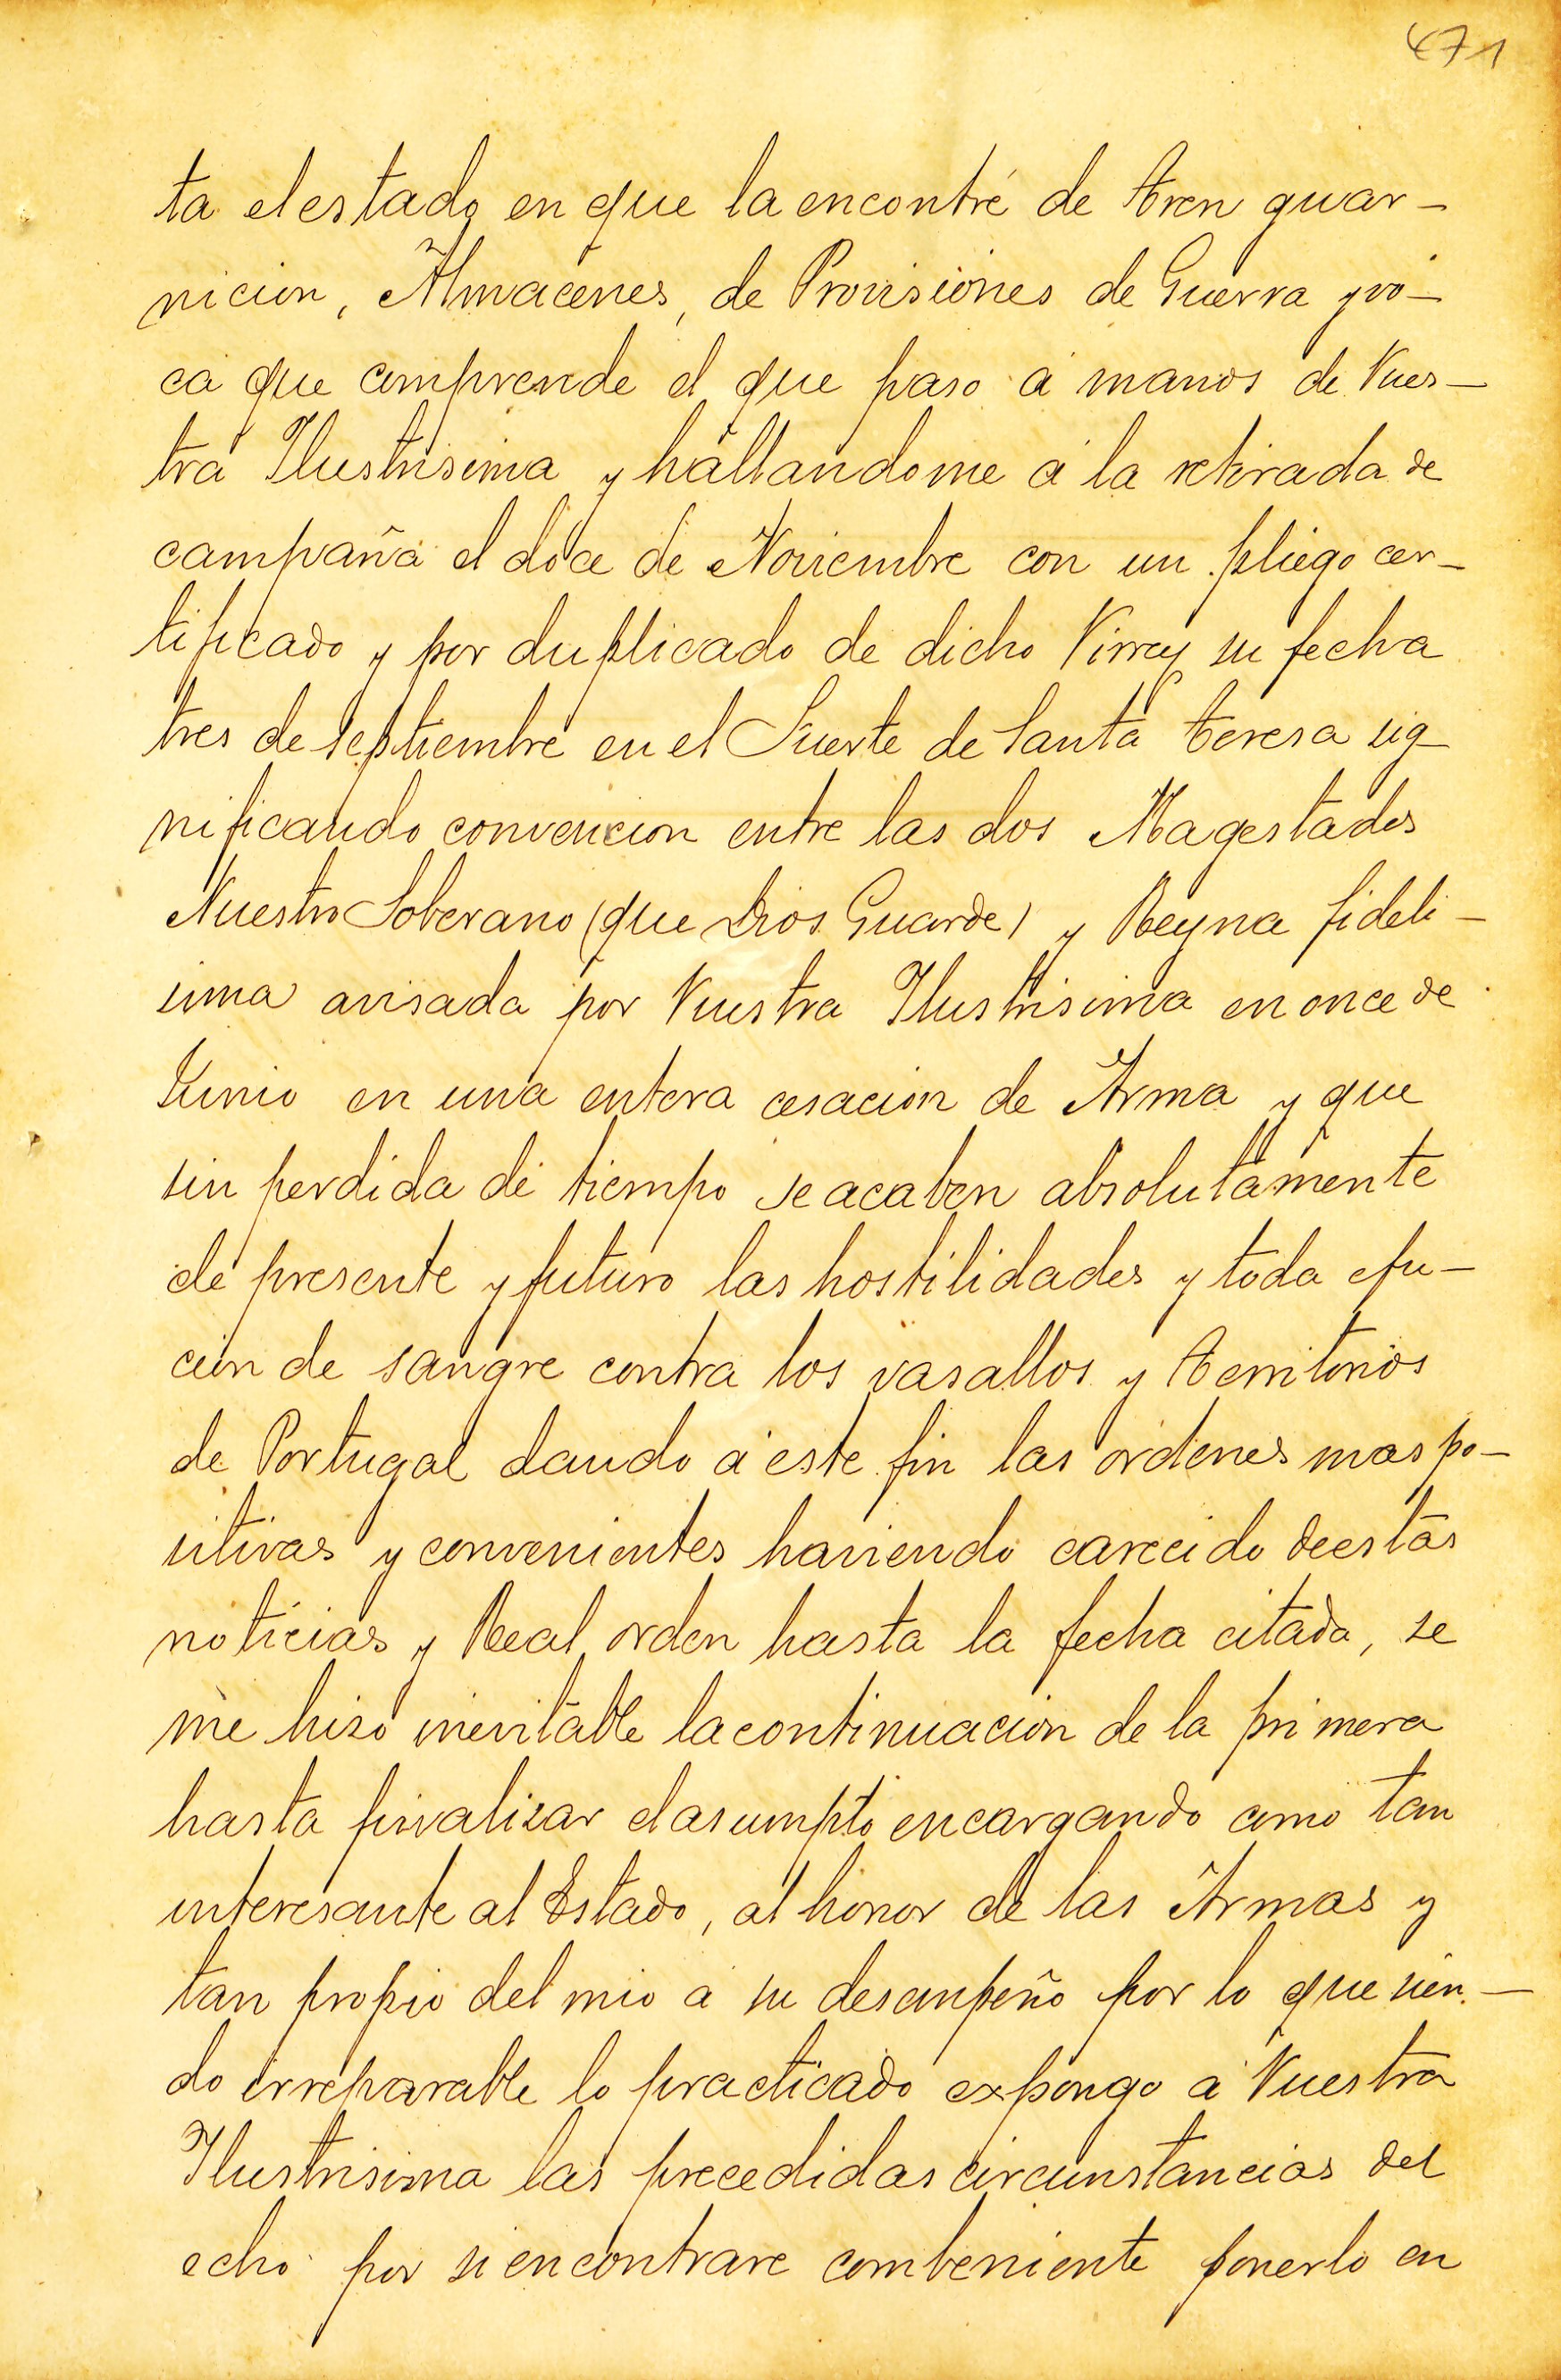 471
ta el estado en que la encontré de tren guar-
nicion, Almacenes, de Provisiones de Guerra y vo-
ca que comprende el que paso á manos de Vues-
tra Ilustrisima y hallandome á la retirada de
campaña el doce de Noviembre con un pliego cer-
tificado y por duplicado de dicho Virrey su fecha
tres de septiembre en el Fuerte de Santa teresa sig-
nificando convencion entre las dos Magestades
Nuestro Soberano (que Dios Guarde) y Reyna fideli-
sima avisada por Vuestra Ilustrisima en once de
Junio en una entera cesacion de Arma y que
sin perdida de tiempo se acaben absolutamente
de presente y futuro las hostilidades y toda efu-
cion de sangre contra los vasallos y territorios
de Portugal dando á este fin las ordenes mas po-
sitivas y convenientes haviendo carecido de estas
noticias y Real orden hasta la fecha citada, se
me hizo inevitable la continuacion de la primera
hasta finalizar el asumpto encargando como tan
interesante al Estado, al honor de las Armas y
tan propio del mio a su desempeño por lo que sien-
do irreparable lo practicado expongo á Vuestra
Ilustrisima las precedidas circunstancias del
echo por si encontrare combeniente ponerlo en